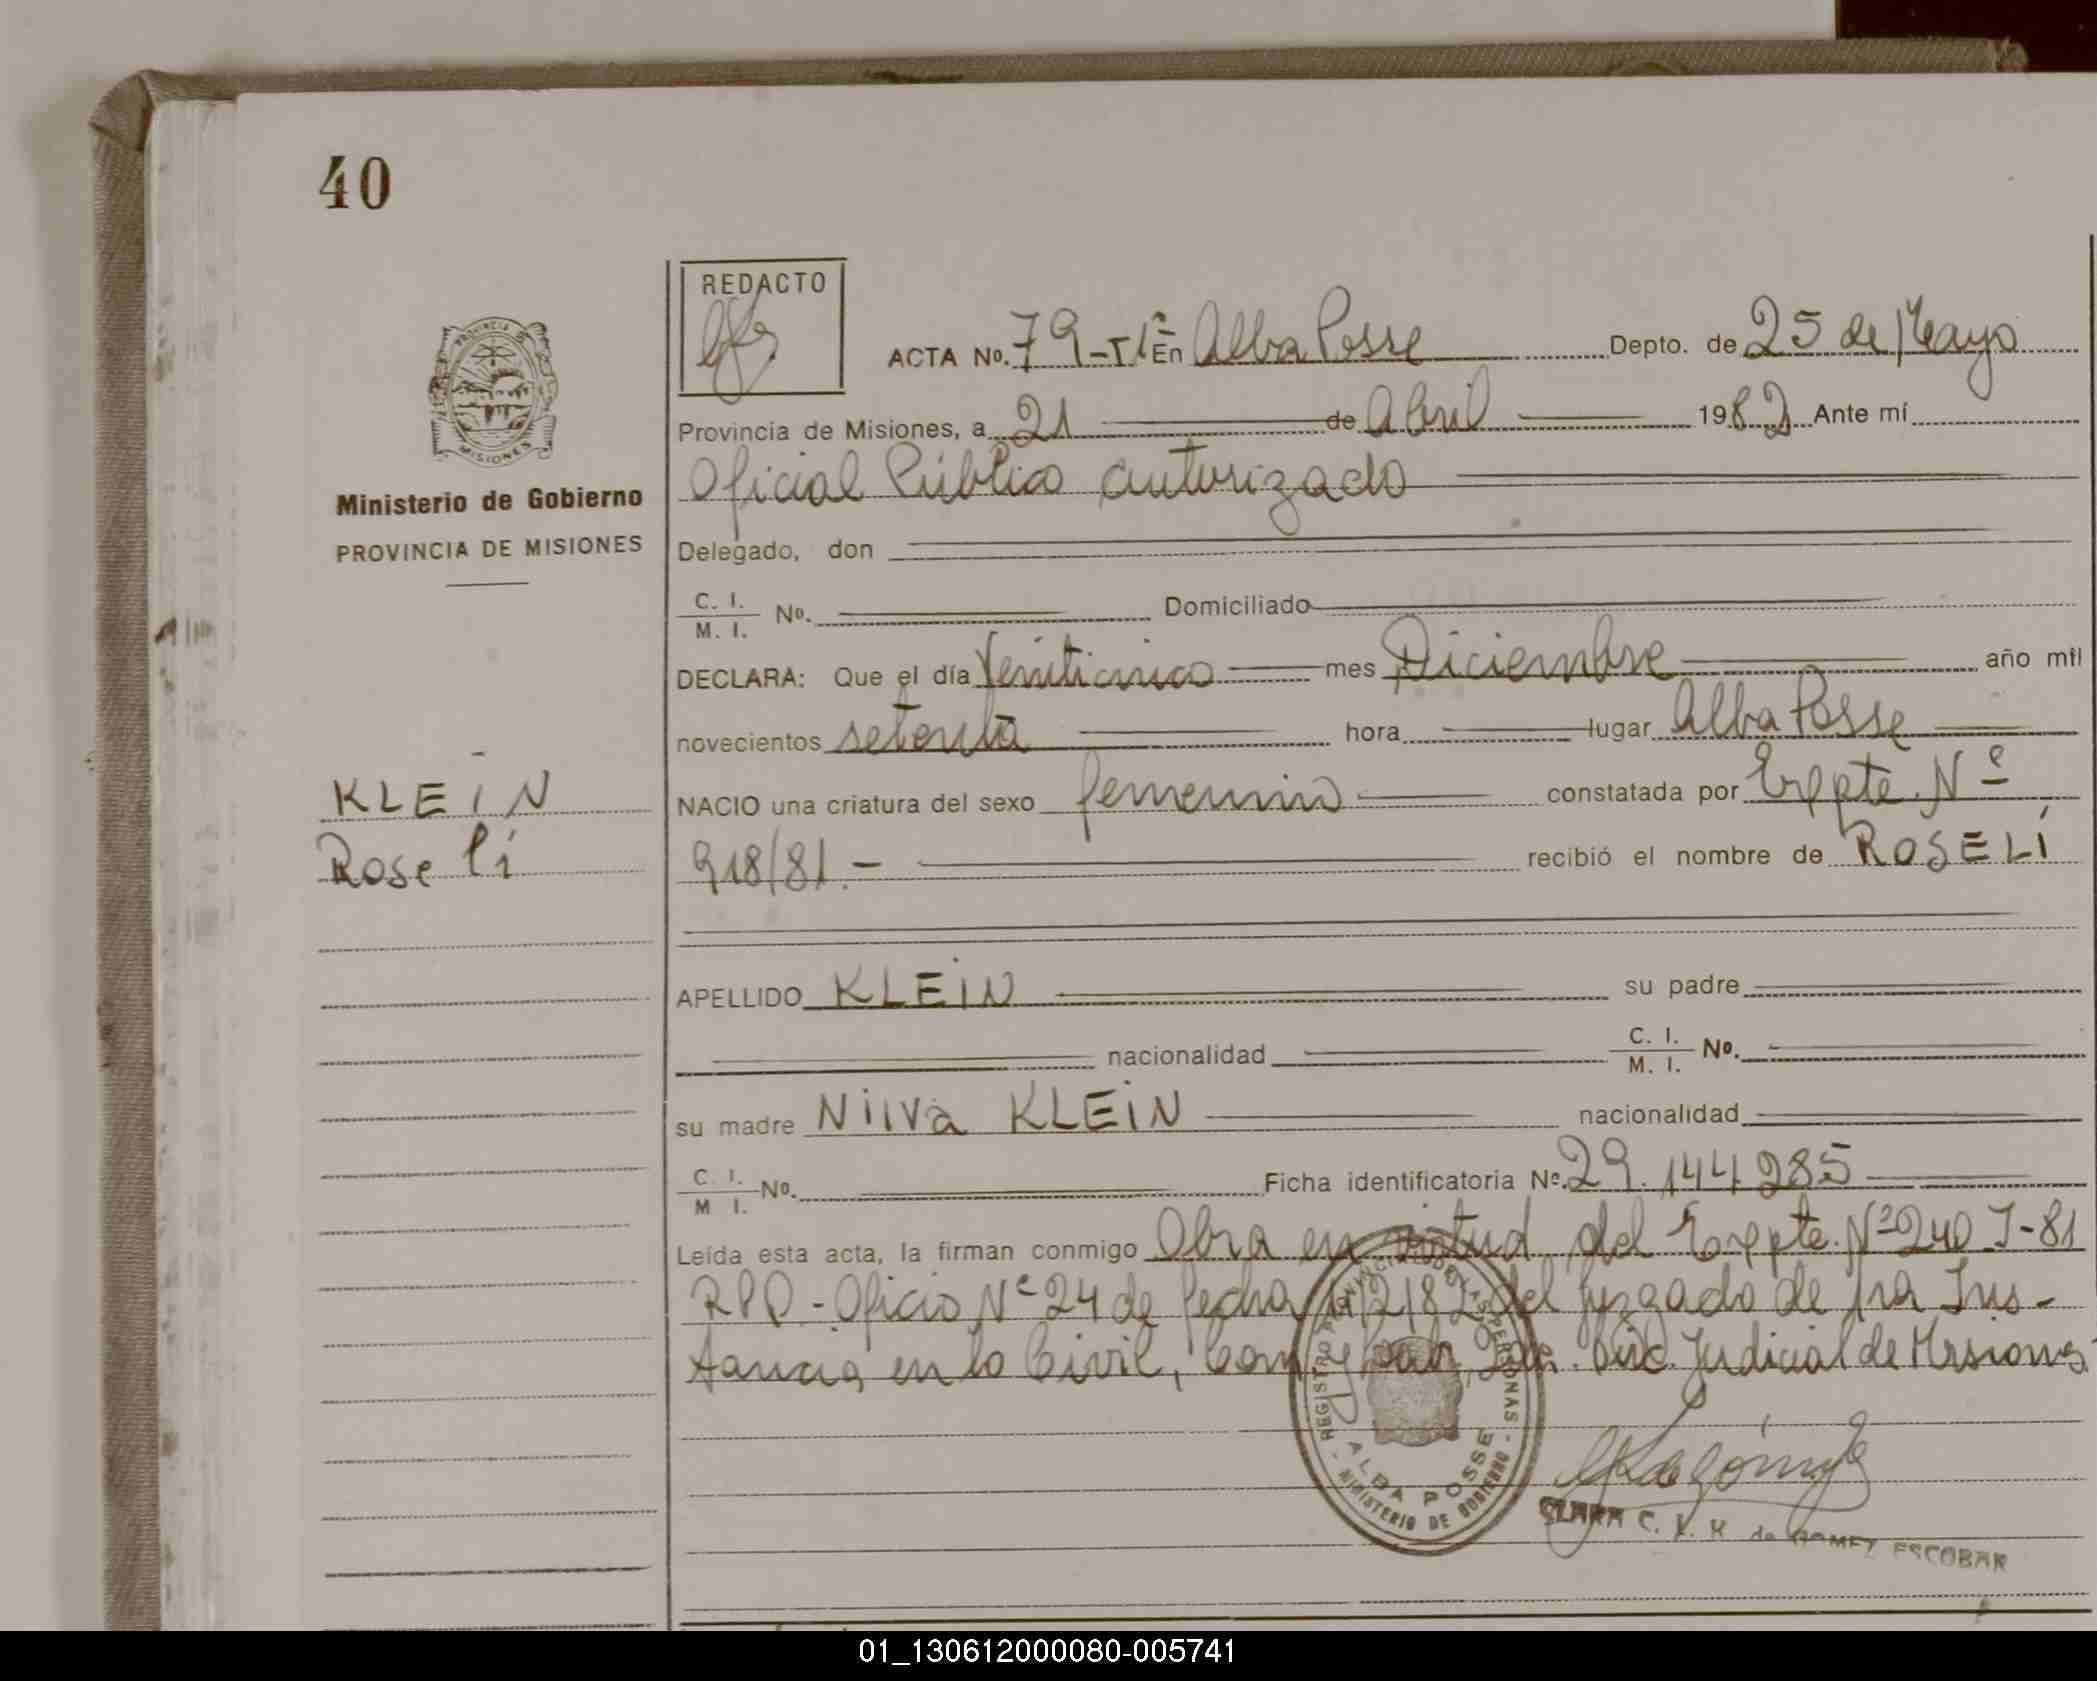 40
REDACTO
PROVINCIA DE
MISIONES
Ministerio de Gobierno
PROVINCIA DE MISIONES
ACTA No. 79-T/Iº En Alba Posse Depto. de 25 de Mayo
Provincia de Misiones, a 21 de Abril 1982 Ante mí
Oficial Público autorizado
Delegado, don
C. I. / M. I. No. Domiciliado
DECLARA: Que el día Veinticinco mes Diciembre año mil
novecientos setenta hora lugar Alba Posse
KLEIN
NACIO una criatura del sexo femenino constatada por Expte. Nº
Roselí
918/81.- recibió el nombre de ROSELÍ
APELLIDO KLEIN su padre
nacionalidad C. I. / M. I. No.
su madre Nilva KLEIN nacionalidad
C. I. / M. I. No. Ficha identificatoria No. 29.144.285
Leída esta acta, la firman conmigo Obra en virtud del Expte. Nº 240 J-81
RPD - Oficio Nº 24 de fecha /2/82 del Juzgado de 1ra Ins-
tancia en lo Civil, Com. y Lab. Jud. Judicial de Misiones
REGISTRO PROVINCIAL DE LAS PERSONAS
ALBA POSSE
MINISTERIO DE GOBIERNO
CLARA C. K. H. de GOMEZ ESCOBAR
01_130612000080-005741